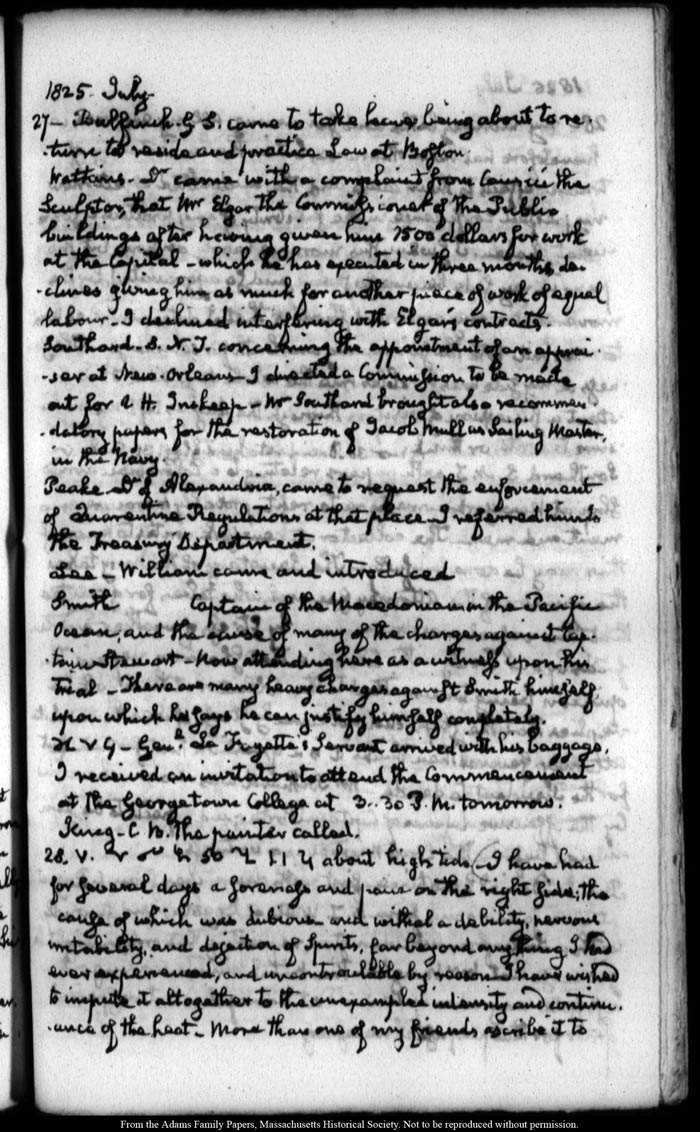 1825. July
27 — Bulfinch. G S. came to take leave, being about to re-
-turn to reside and practice Law at Boston.
Watkins. Dr came with a complaint from Causici the
Sculptor, that Mr Elgar the Commissioner of the Public
buildings after having given him 1500 dollars for work
at the Capitol — which he has executed in three months, de-
-clines giving him as much for another piece of work of equal
labour. I declined interfering with Elgar's contracts.
Southard. S. N. J. concerning the appointment of an apprai-
-ser at New-Orleans — I directed a Commission to be made
out for A H. Inskeep — Mr Southard brought also recommen-
-datory papers for the restoration of Jacob Mull as Sailing Master,
in the Navy.
Peake. Dr of Alexandria, came to request the enforcement
of Quarantine Regulations at that place — I referred him to
the Treasury Department.
Lee — William came and introduced
Smith Captain of the Macedonian in the Pacific
Ocean, and the of many of the charges against Cap-
-tain Stewart — Now attending here as a witness upon his
trial — There are many heavy charges against Smith himself,
upon which he says he can justify himself completely.
Genl. La Fayette's Servant arrived with his baggage.
I received an invitation to attend the Commencement
at the Georgetown College at 3..30 P. M. tomorrow.
King — C B. the painter called.
28. V. about high tide. I have had
for several days a soreness and pain on the right side; the
cause of which was dubious and withal a debility, nervous
irritability, and dejection of Spirits, far beyond any thing I had
ever experienced, and uncontroulable by reason. I have wished
to impute it altogether to the unexampled intensity and continu-
-ance of the heat — More than one of my friends ascribe it to
From the Adams Family Papers, Massachusetts Historical Society. Not to be reproduced without permission.